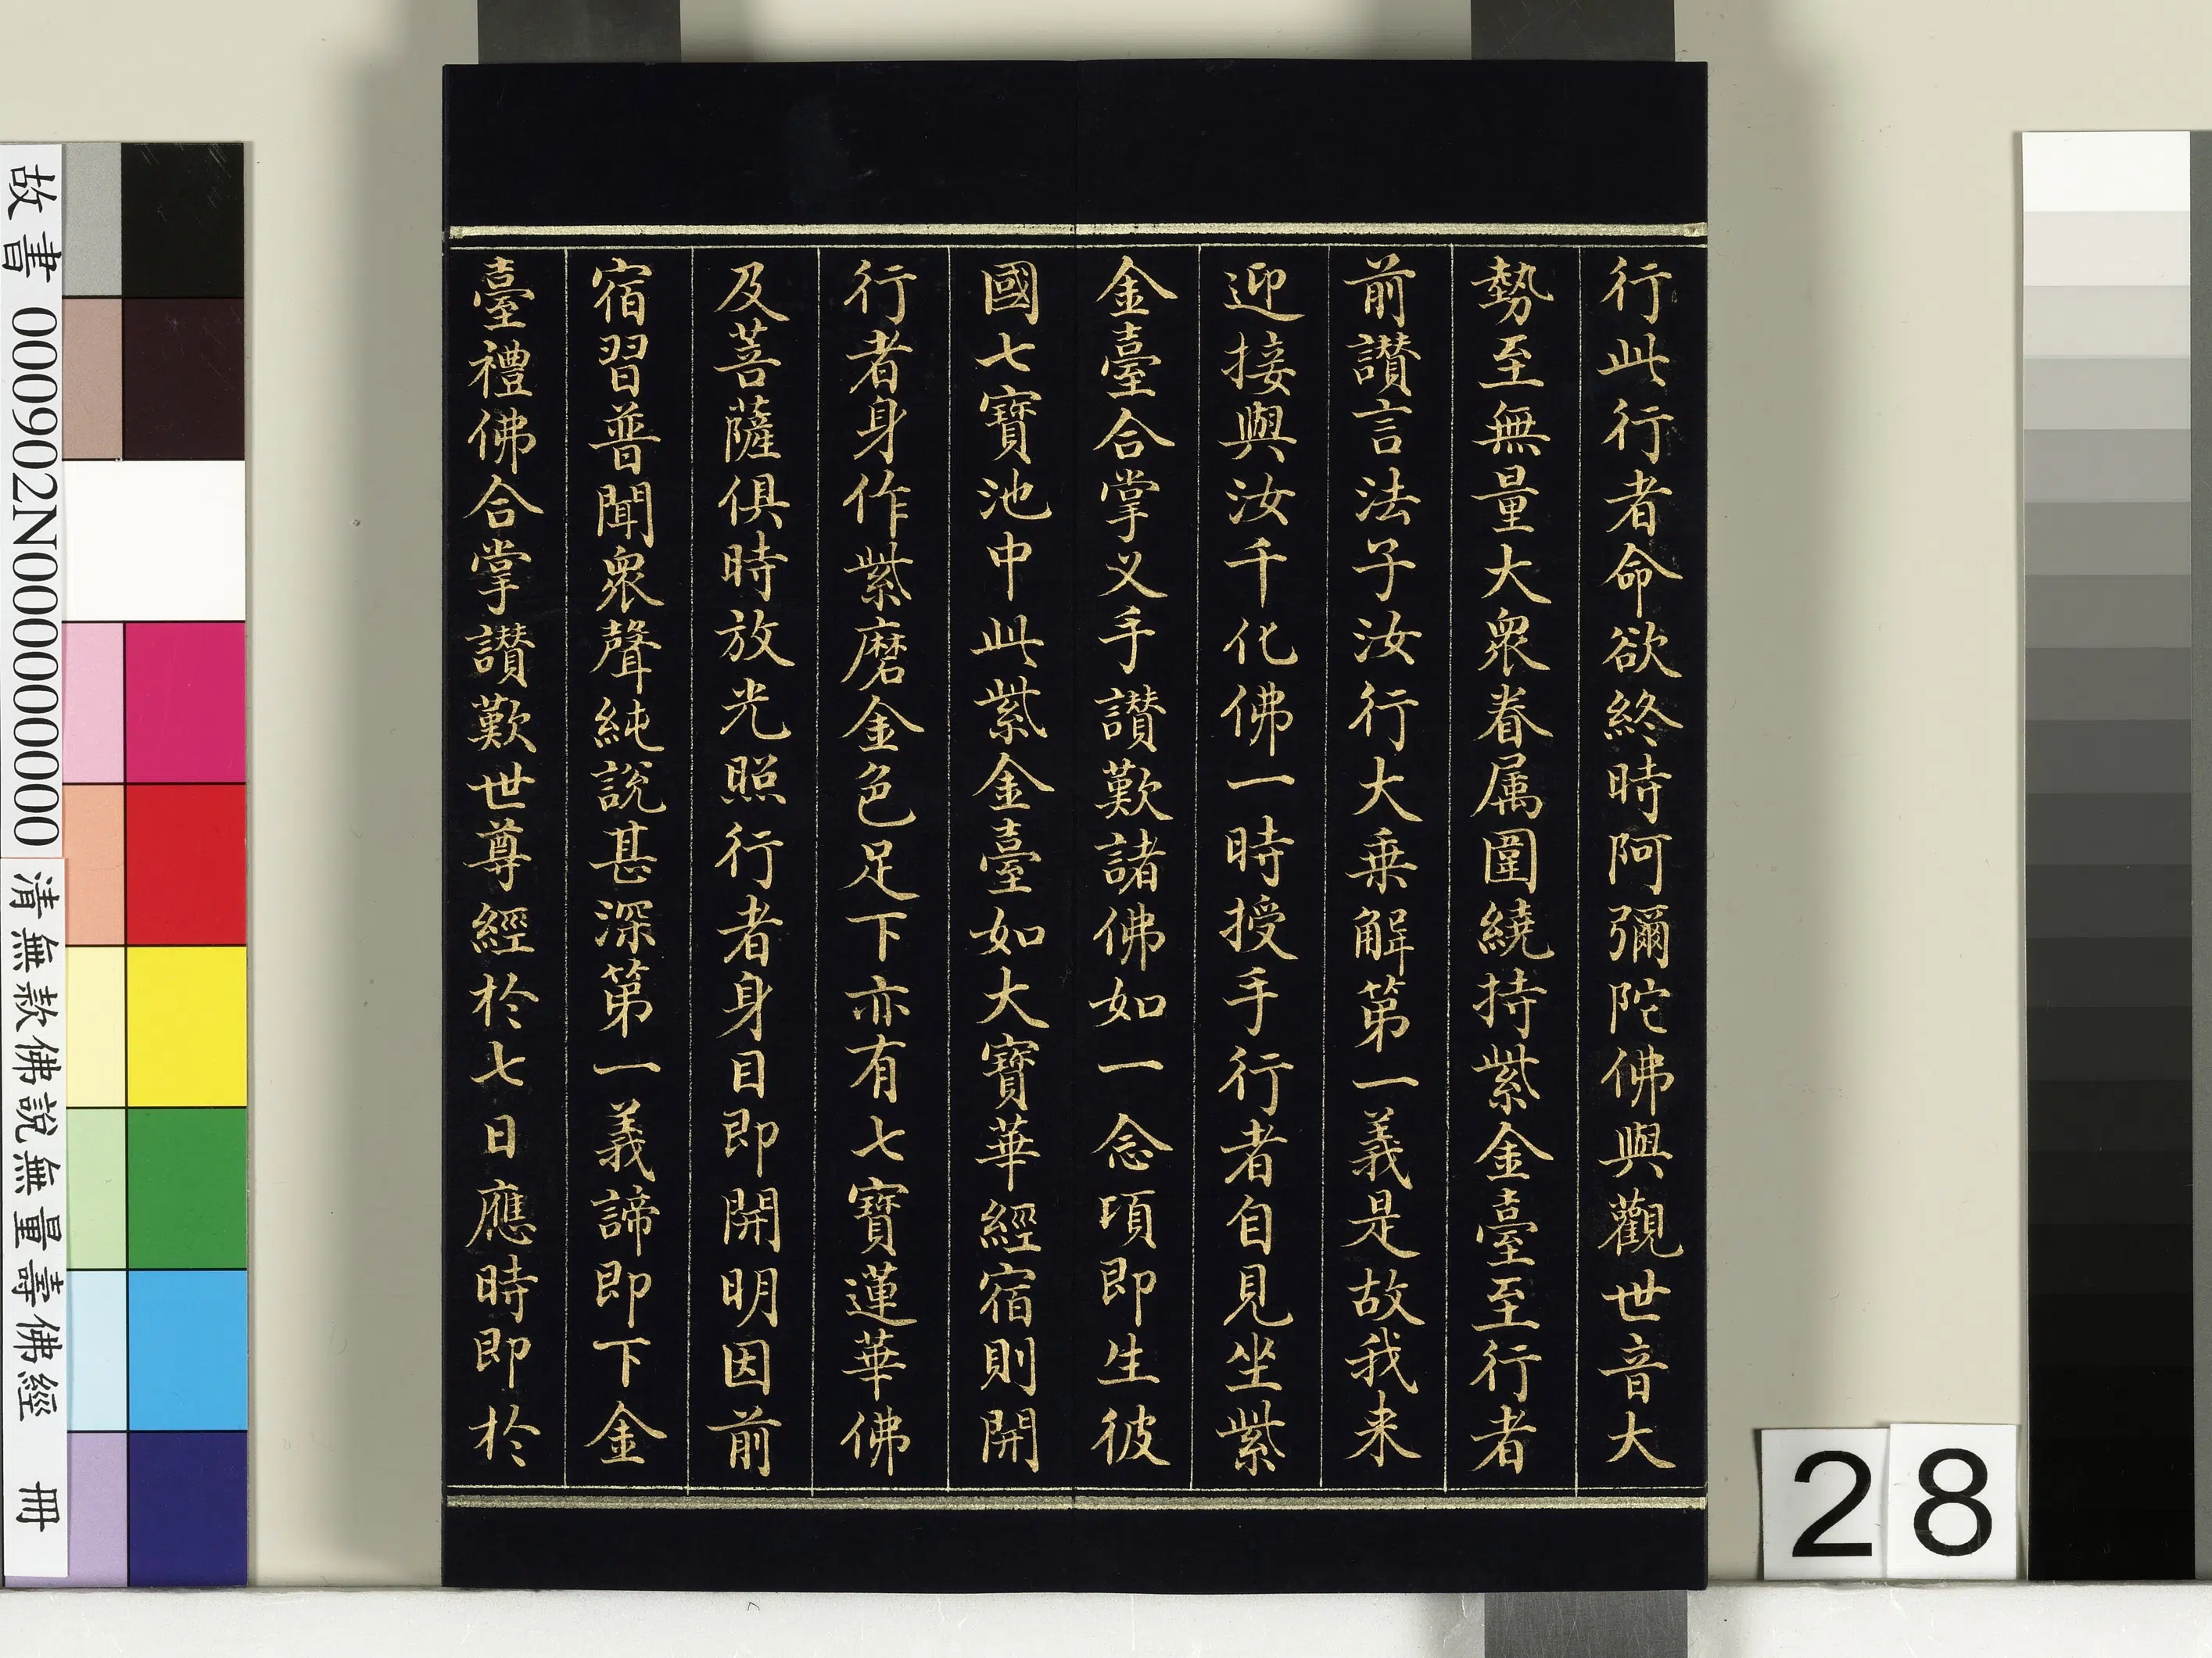 行此行者命欲終時阿彌陀佛與觀世音大
勢至無量大衆眷属圍繞持紫金臺至行者
前讃言法子汝行大乗解第一義是故我来
迎接與汝千化佛一時授手行者自見坐紫
金臺合掌义手讃歎諸佛如一念項即生彼
國七寶池中此紫金臺如大寶華經宿則開
行者身作紫磨金色足下亦有七寶蓮華佛
及菩薩俱時放光照行者身目即開明因前
宿習普聞衆聲純說甚深第一義諦即下金
臺禮佛合掌讃歎世尊經於七日應時即於
故書 000902N000000000 清無款佛說無量壽佛經 冊
28